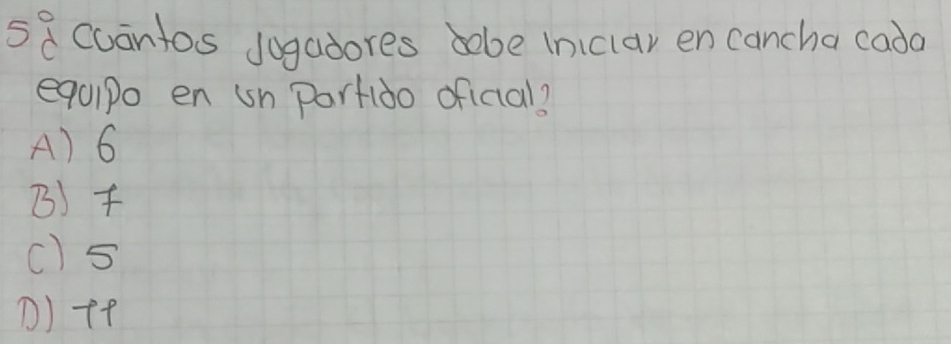 5° ¿Cuántos Jugadores debe iniciar en cancha cada
equipo en un Partido oficial?
A) 6
B) 7
C) 5
D) 11